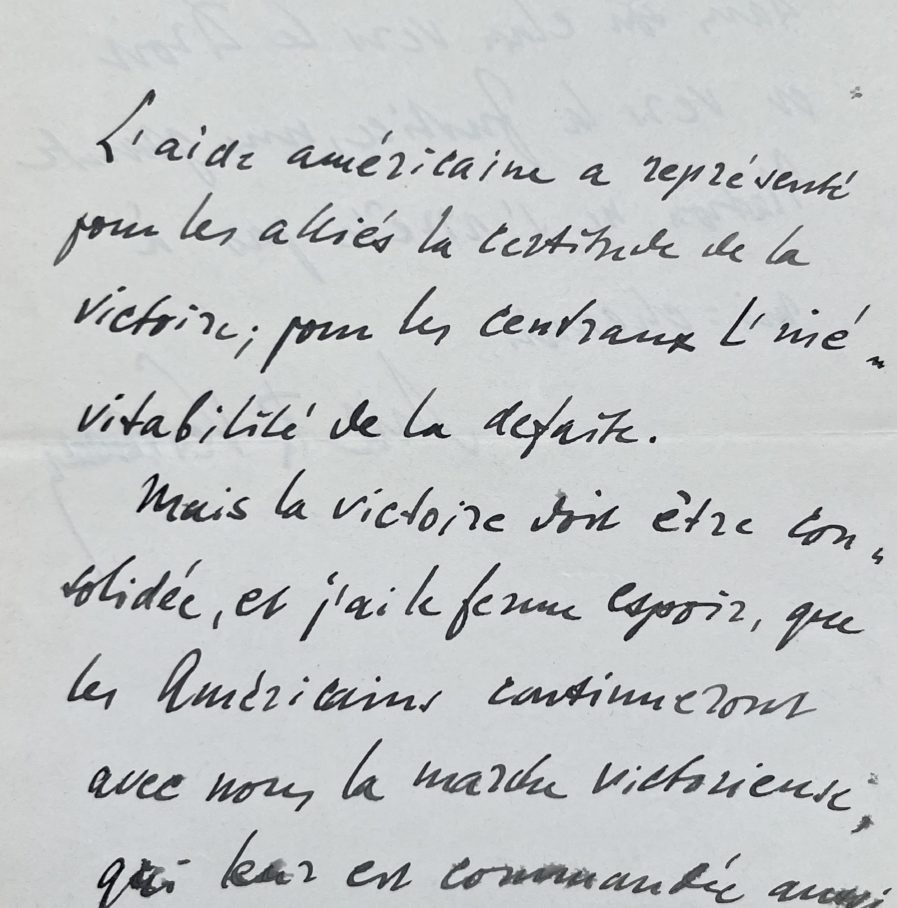 L'aide américaine a représenté
pour les alliés la certitude de la
victoire; pour les centraux l'iné-
vitabilité de la defaite.
Mais la victoire doit être con-
solidée, et j'ai le ferme espoir, que
les Américains continueront
avec nous la marche victorieuse,
qui leur est commandée aussi